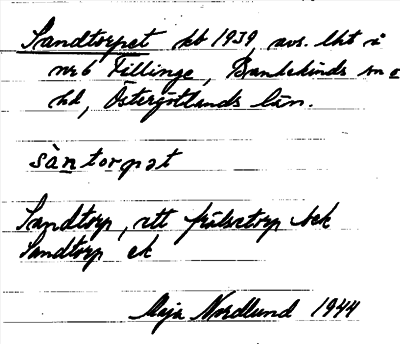 Sandtorpet kb 1939, avs. lht i
nr 6 Fillinge, Bankekinds sn o
hd, Östergötlands län.
sàntorpət
Sandtorp, ett frälsetorp bek
Sandtorp ek
Maja Nordlund 1944